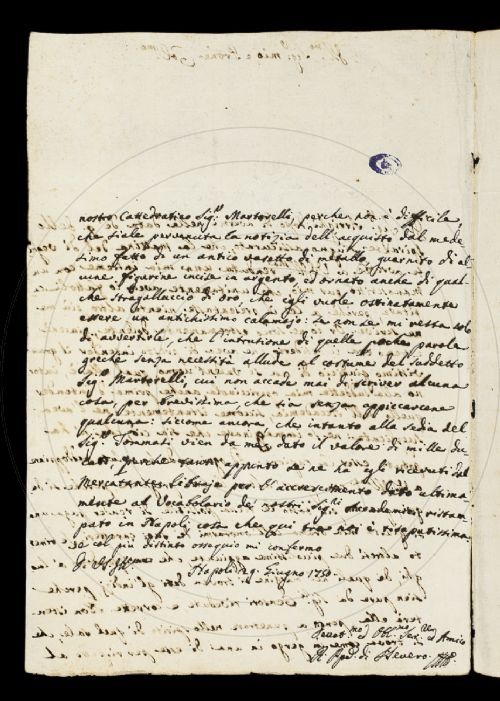 nostro Cattedratico Sig.r Martorelli, perche non è difficile,
che siale pervenuta la notizia dell'acquisto dal mede
simo fatto di un antico vasetto di metallo, guarnito di al
cune figurine incise in argento, ed ornato anche di qual
che di oro, che egli vuole ostinatamente
essere un antichissimo calamajo: la onde mi resta solo
di avvertirle, che l'intrusione di quelle poche parole
greche senza necessità allude al costume del suddetto
Sig.r Martorelli, cui non accade mai di scriver alcuna
cosa, per brevissima che sia senza appiccarcene
qualcuna: siccome ancora, che intanto alla Sedia del
Sig.r vien da me dato il valore di mille du
cati, perche tanti appunto se ne ha egli ricevuti dal
Mercatante Librajo per l'accrescimento dato ultima
mente al Vocabolario de' nostri Sig.ri ristam
pato in Napoli, cosa che qui tra noi è risaputissima.
E col più distinto ossequio mi confermo
Di V.S. Ill.ma
Napoli Giugno 1750.
Devot.mo ed Obl.mo Ser. Vero ed Amico
di Severo